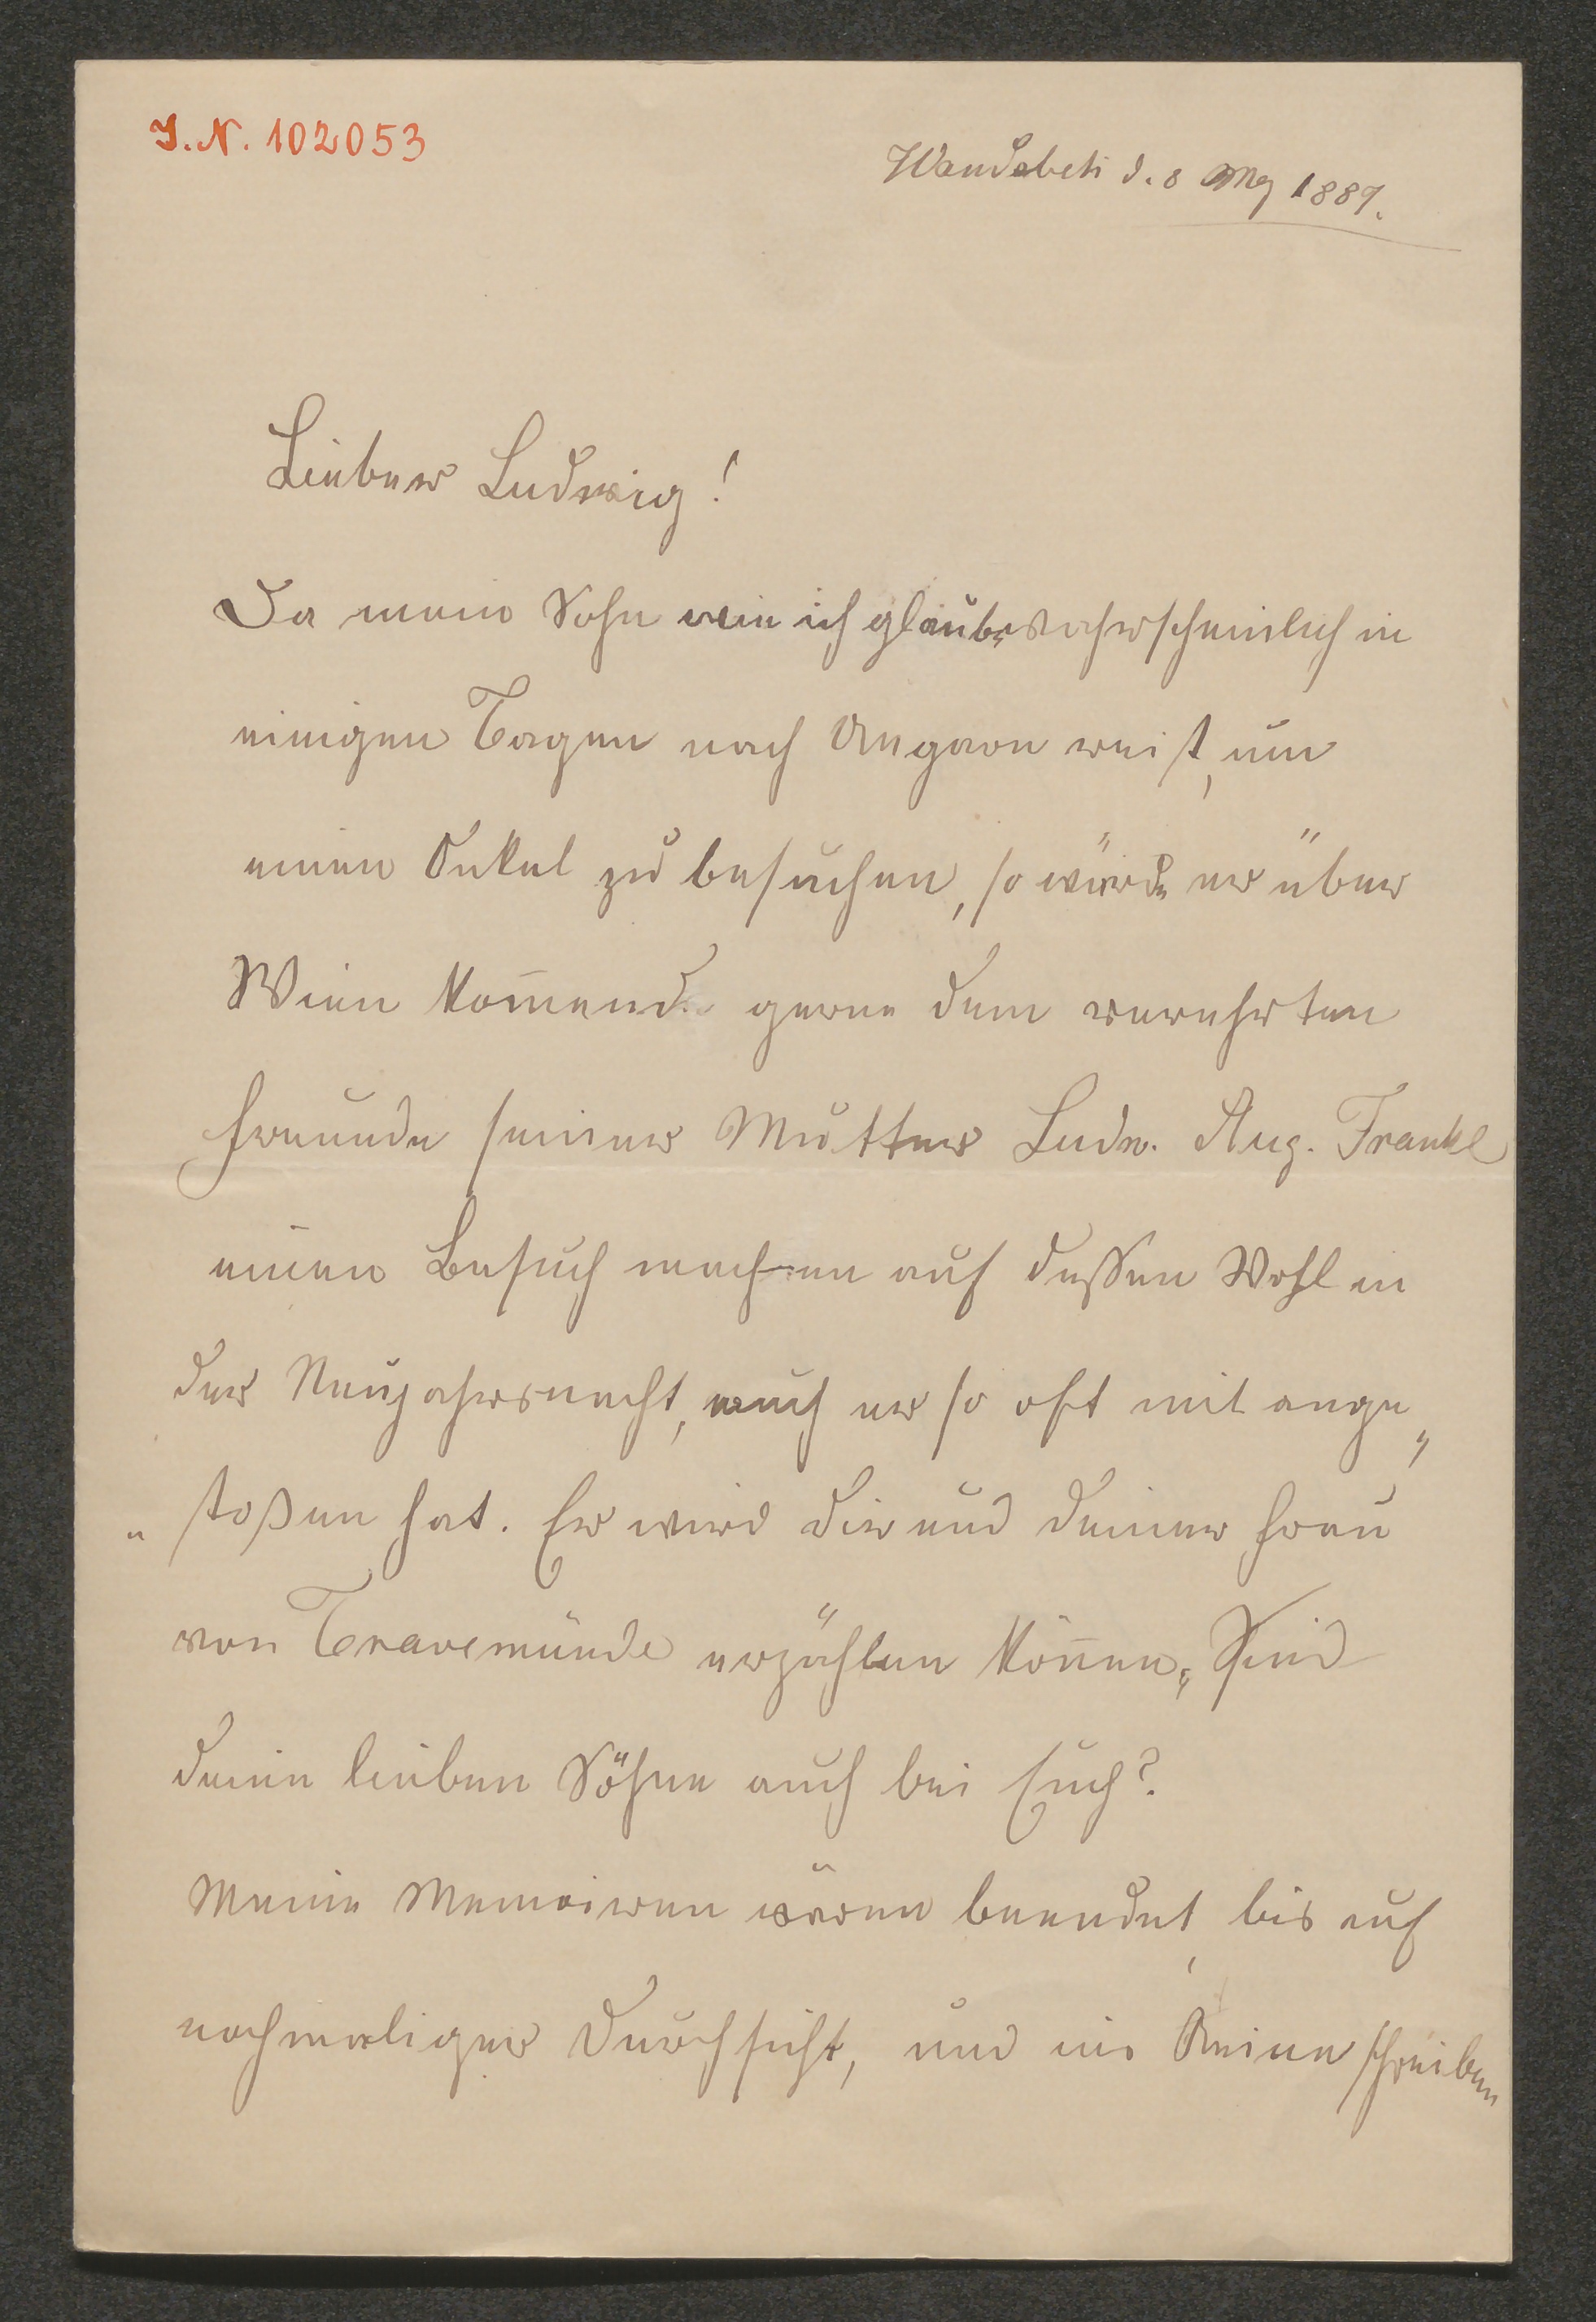 I.N. 102053
Wandsbeck d. 8 Aug 1889.
Lieber Ludwig!
Da mein Sohn wie ich glaube wahrscheinlich in
einigen Tagen nach Ungarn reist, um
einen Onkel zu besuchen, so würde er über
Wien kom̄end gerne dem verehrten
Freunde seiner Mutter Ludw. Aug. Frankl
einen Besuch machen auf deßen Wohl in
der Neujahrsnacht, auch er so oft mit ange„
„stoßen hat. Er wird dir und deiner Frau
von Travemünde erzählen kön̄en, Sind
deine lieben Söhne auch bei Euch?
Meine Memoiren wären beendet, bis auf
nochmaliger Durchsicht, und ins Reine schreiben